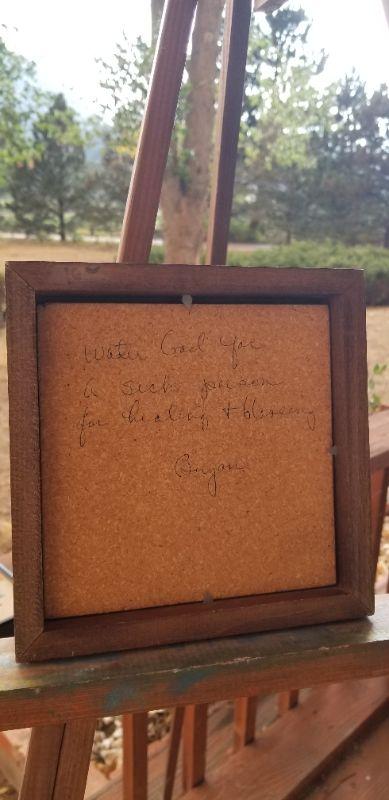 Water God for
a sick person
for healing & blessing